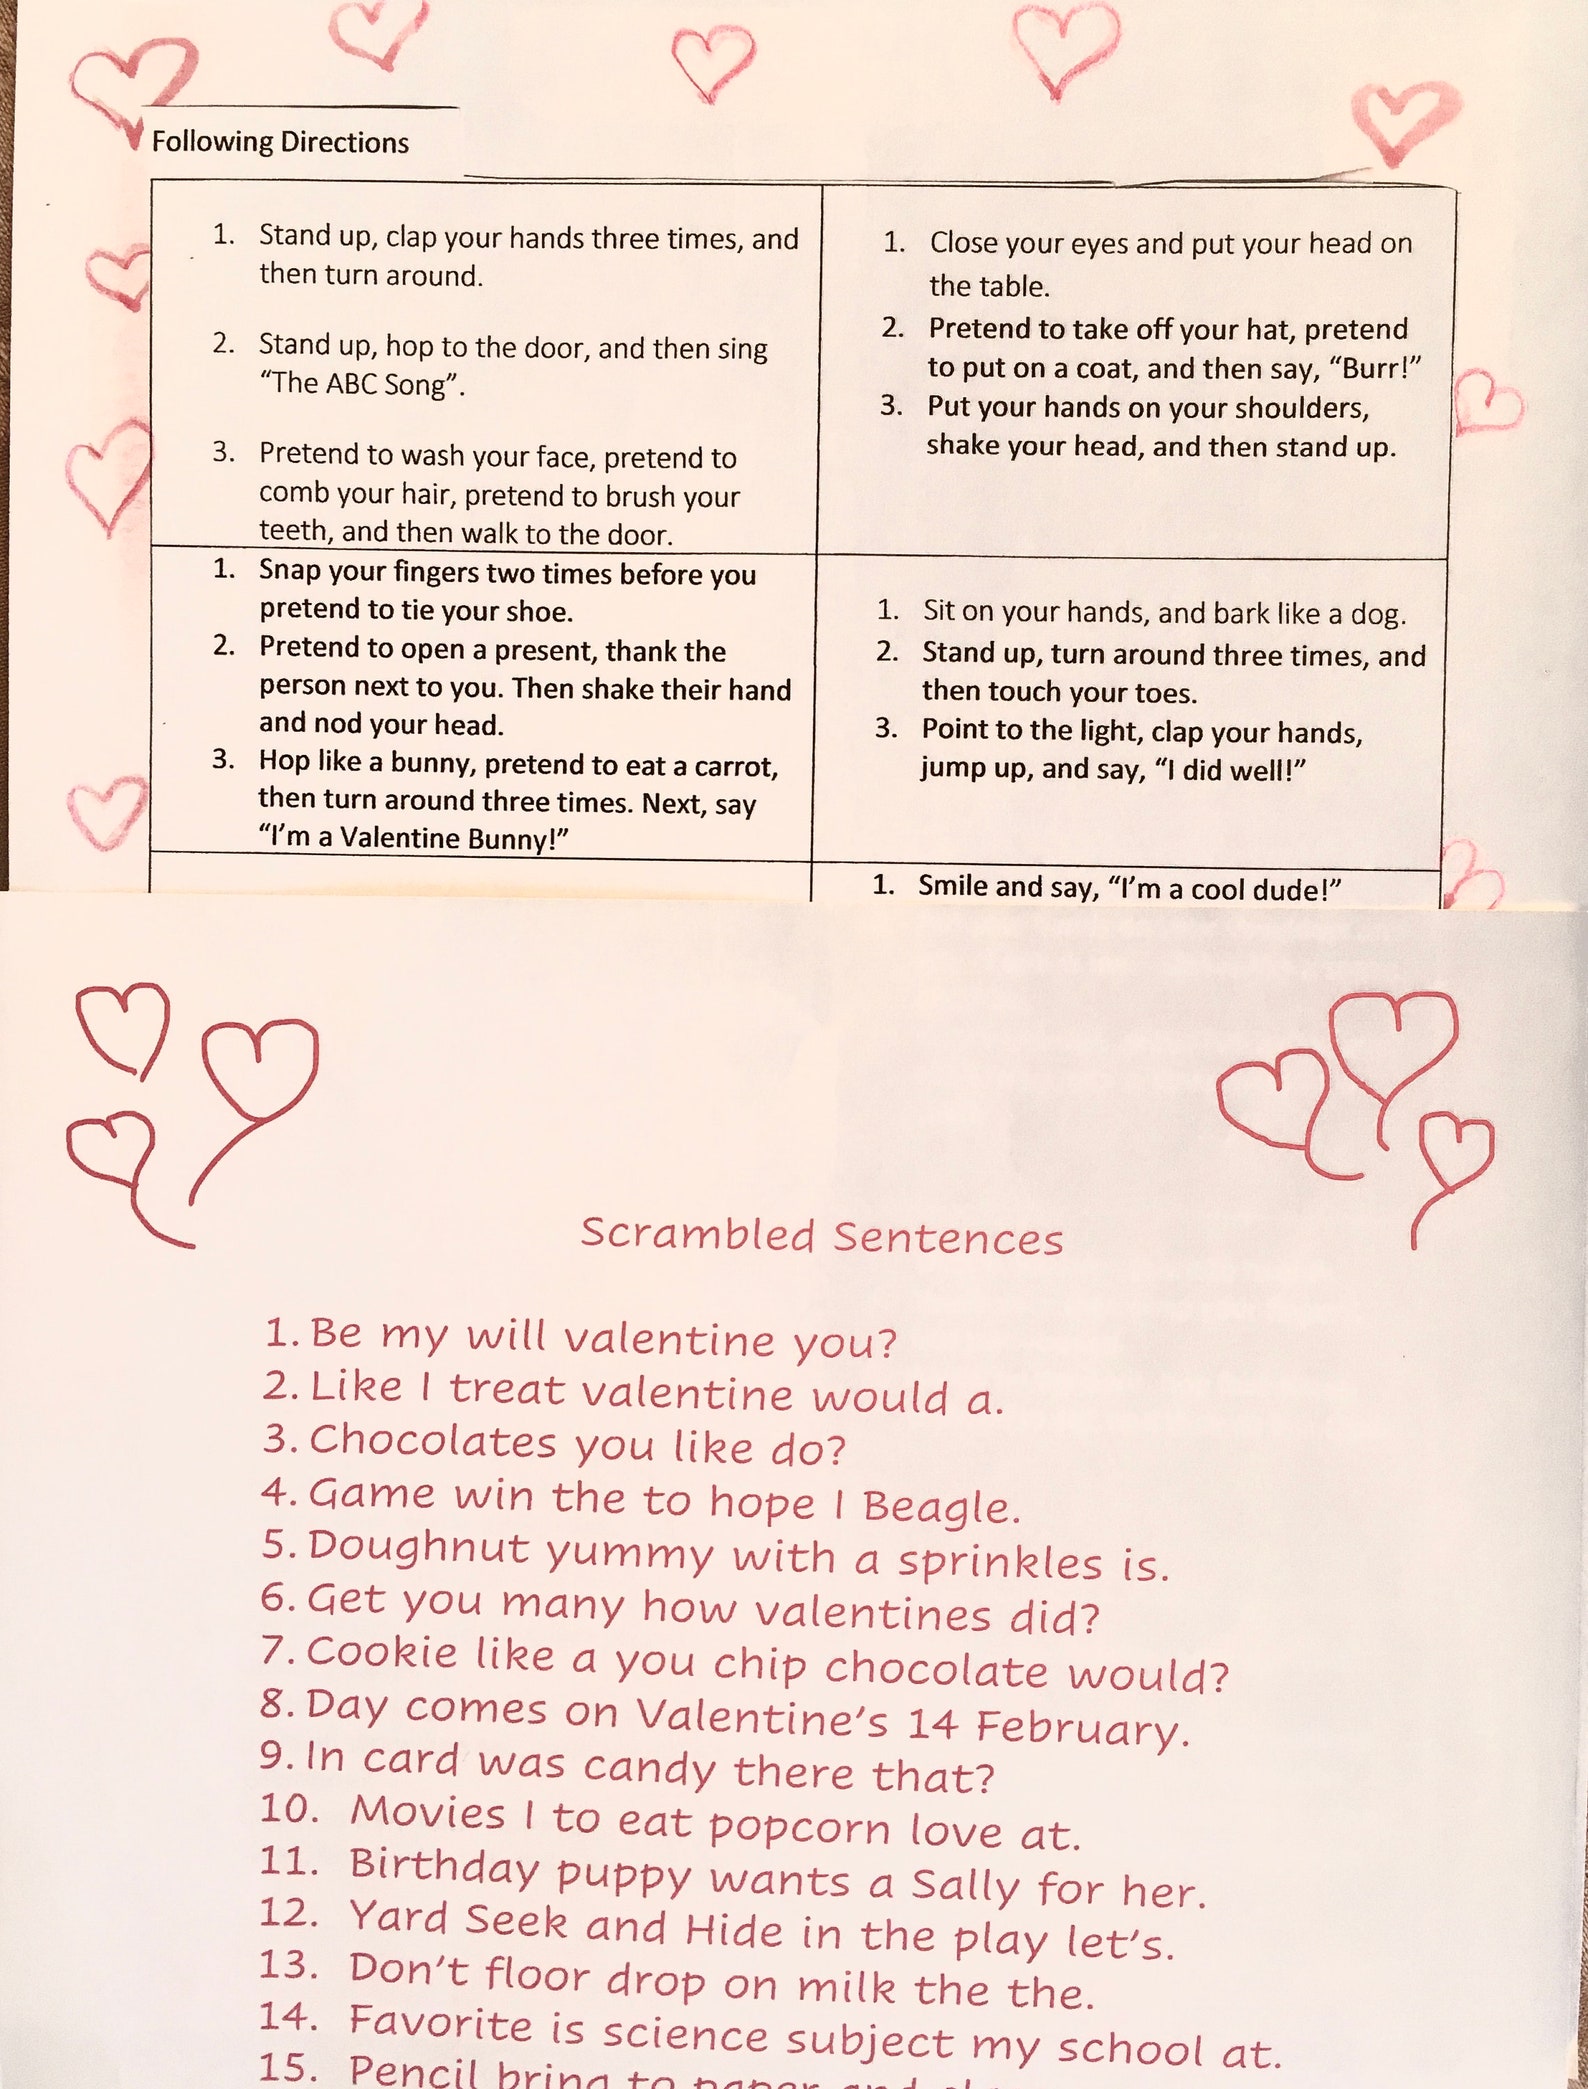 Following Directions
1. Stand up, clap your hands three times, and
then turn around.
2. Stand up, hop to the door, and then sing
“The ABC Song”.
3. Pretend to wash your face, pretend to
comb your hair, pretend to brush your
teeth, and then walk to the door.
1. Close your eyes and put your head on
the table.
2. Pretend to take off your hat, pretend
to put on a coat, and then say, “Burr!”
3. Put your hands on your shoulders,
shake your head, and then stand up.
1. Snap your fingers two times before you
pretend to tie your shoe.
2. Pretend to open a present, thank the
person next to you. Then shake their hand
and nod your head.
3. Hop like a bunny, pretend to eat a carrot,
then turn around three times. Next, say
“I’m a Valentine Bunny!”
1. Sit on your hands, and bark like a dog.
2. Stand up, turn around three times, and
then touch your toes.
3. Point to the light, clap your hands,
jump up, and say, “I did well!”
1. Smile and say, “I’m a cool dude!”
Scrambled Sentences
1. Be my will valentine you?
2. Like I treat valentine would a.
3. Chocolates you like do?
4. Game win the to hope I Beagle.
5. Doughnut yummy with a sprinkles is.
6. Get you many how valentines did?
7. Cookie like a you chip chocolate would?
8. Day comes on Valentine’s 14 February.
9. In card was candy there that?
10. Movies I to eat popcorn love at.
11. Birthday puppy wants a Sally for her.
12. Yard Seek and Hide in the play let’s.
13. Don’t floor drop on milk the the.
14. Favorite is science subject my school at.
15. Pencil bring to paper and